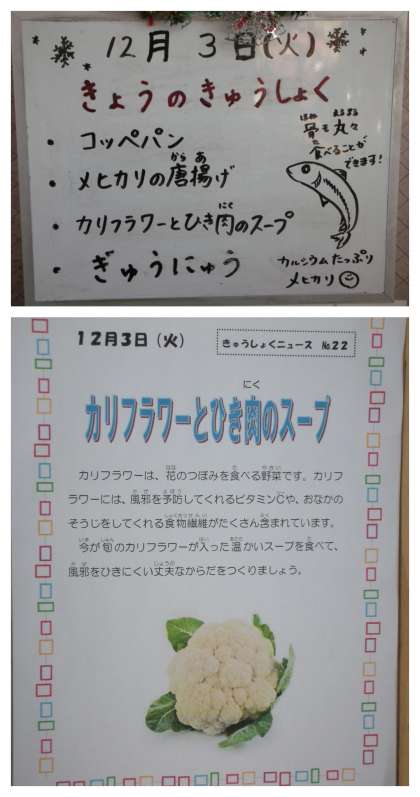 12月 3日(火)
きょうのきゅうしょく
・ コッペパン
・ メヒカリの唐揚げ
からあ
・ カリフラワーとひき肉のスープ
にく
・ ぎゅうにゅう
骨も丸々
ほね まるまる
食べることが
た
できます!
カルシウムたっぷり
メヒカリ
12月3日(火)
きゅうしょくニュース №22
にく
カリフラワーとひき肉のスープ
はな た やさい
カリフラワーは、花のつぼみを食べる野菜です。カリフ
かぜ よぼう
ラワーには、風邪を予防してくれるビタミンCや、おなかの
しょくもつせんい ふく
そうじをしてくれる食物繊維がたくさん含まれています。
いま しゅん はい あたた た
今が旬のカリフラワーが入った温かいスープを食べて、
かぜ じょうぶ
風邪をひきにくい丈夫なからだをつくりましょう。